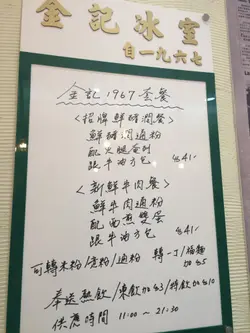 金記冰室
自一九六七
金記1967套餐
<招牌鮮豬潤餐>
鮮豬潤通粉
配火腿奄列
跟牛油方包 $41-
<新鮮牛肉餐>
鮮牛肉通粉
配西煎雙蛋
跟牛油方包 $41-
可轉米粉/意粉/通粉 轉一丁/ 加$5
奉送熱飲/凍飲加$3/特飲加$10
供應時間 11:00~21:30